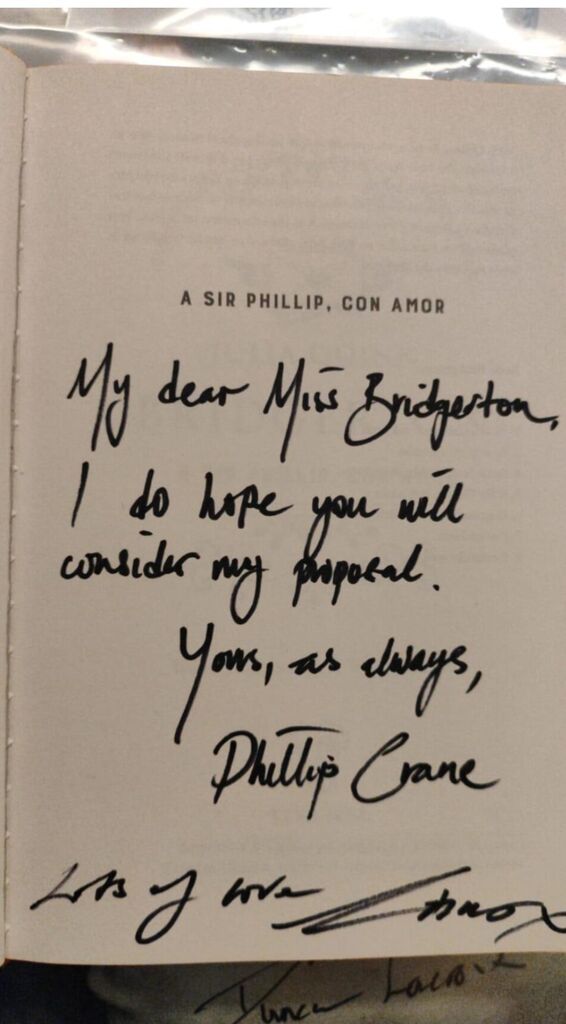 A SIR PHILLIP, CON AMOR
My dear Miss Bridgerton,
I do hope you will
consider my proposal.
Yours, as always,
Phillip Crane
Lots of love